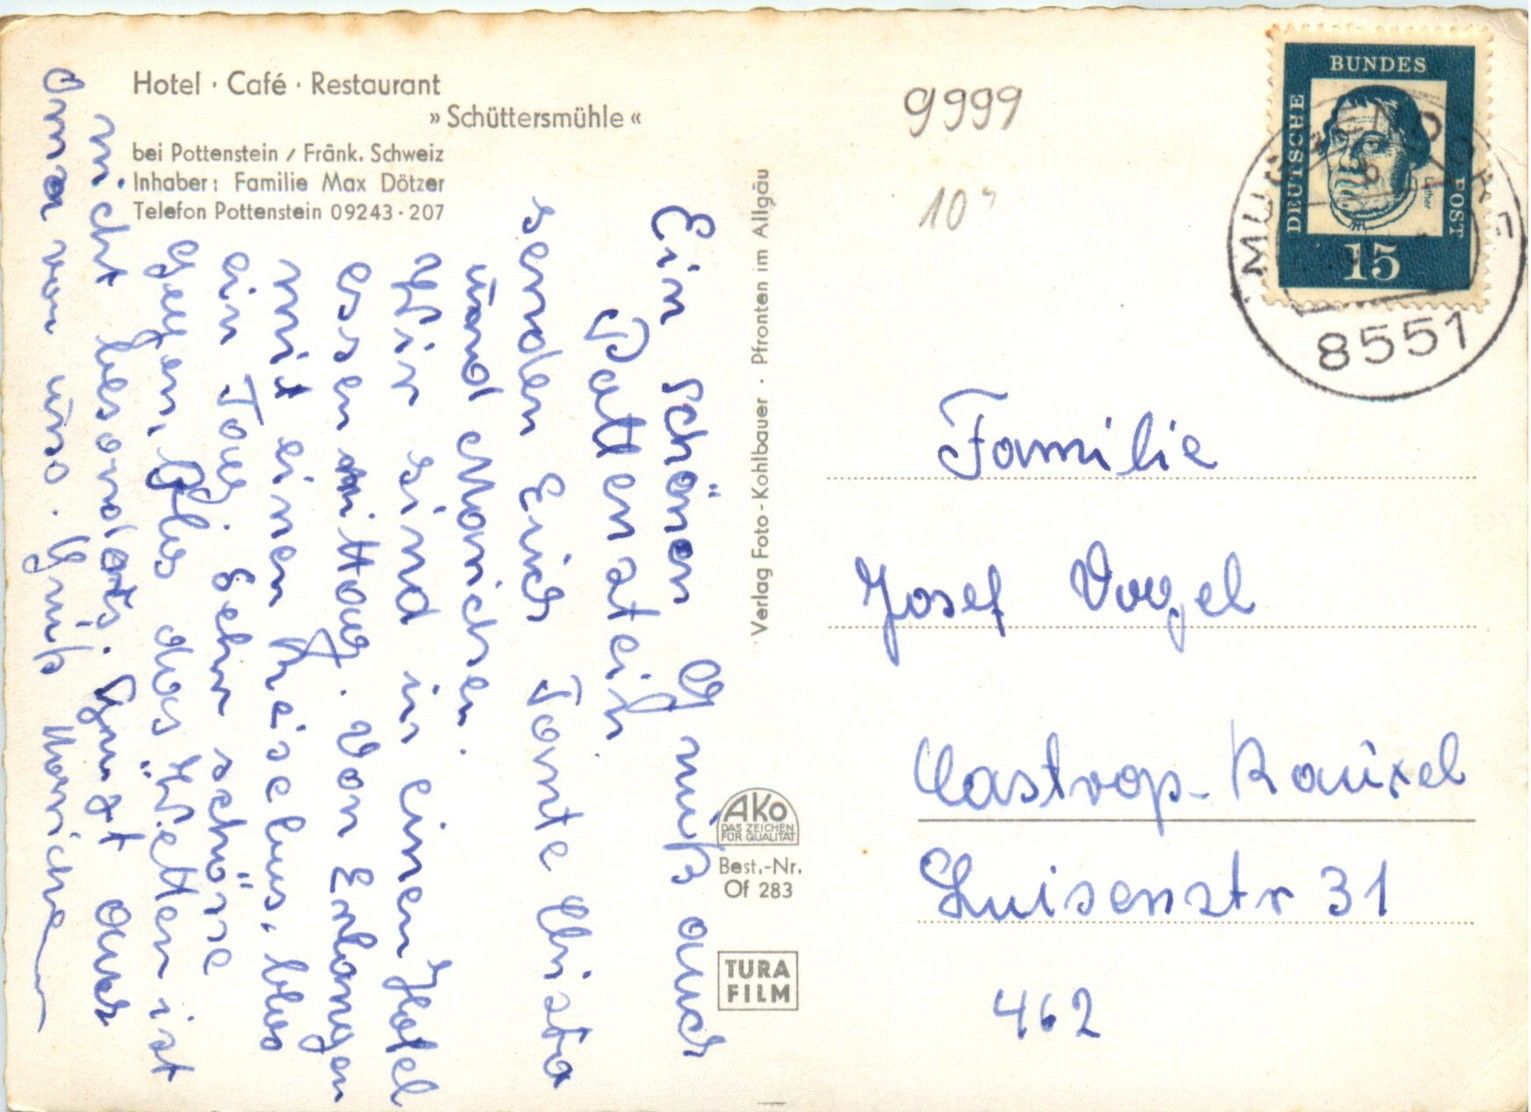 Hotel · Café · Restaurant
»Schüttersmühle«
bei Pottenstein / Fränk. Schweiz
Inhaber: Familie Max Dötzer
Telefon Pottenstein 09243 · 207
Ein schönen Gruß aus
Pattenstein
senden Euch Tante Christa
und Marichen.
Wir sind in einen Hotel
essen mittag. Von Erlangen
mit einen Reisebus, blos
ein Tag. Sehr schöne
Gegen, Blos das Wetter ist
nicht besonders. Grust auch
Oma von uns. Gruß Mariche
Verlag Foto-Kohlbauer · Pfronten im Allgäu
AKO
DAS ZEICHEN
FÜR QUALITÄT
Best.-Nr.
Of 283
TURA
FILM
9999
10
DEUTSCHE
BUNDES
POST
Luther
15
8551
Familie
Josef Vogel
Castrop-Rauxel
Luisenstr 31
462